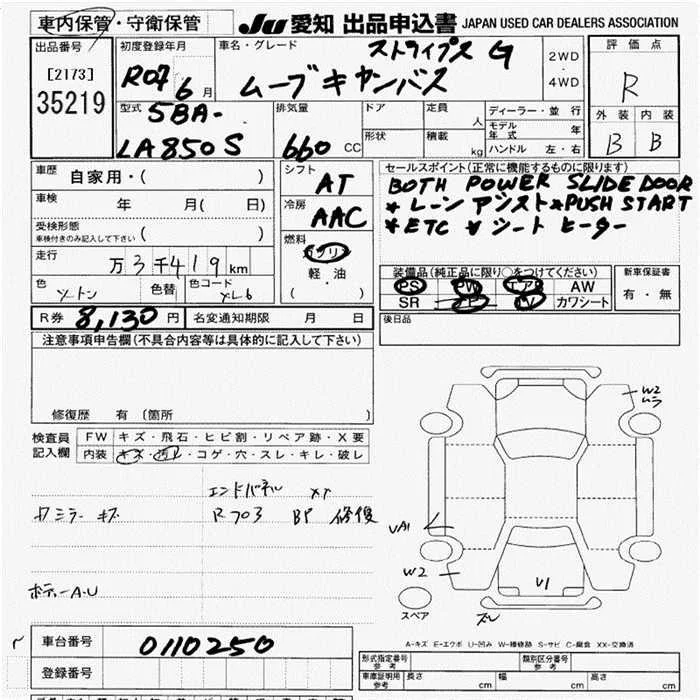 車内保管・守衛保管
JU 愛知 出品申込書 JAPAN USED CAR DEALERS ASSOCIATION
出品番号
[2173]
35219
初度登録年月
R07 6月
車名・グレード
ストライプス G
ムーブキャンバス
2WD
・
4WD
評価点
R
外装 内装
B B
型式
5BA-
LA850S
排気量
660 CC
ドア
形状
定員 人
積載 kg
ディーラー・並行
モデル年式 年
ハンドル 左・右
車歴 自家用・( )
車検 年 月( 日)
受検形態
車検付きのみ記入して下さい ( )
走行 万3千419km
色 ツートン 色替 色コード
シフト AT
冷房 AAC
燃料
ガソリン
軽・油
( )
セールスポイント(正常に機能するものに限ります)
BOTH POWER SLIDE DOOR
*レーンアシスト*PUSH START
*ETC *シートヒーター
装備品(純正品に限り○をつけてください)
PS PW エアB AW
SR ナビ TV カワシート
新車保証書
有・無
R券 8,130円 名変通知期限 月 日
後日品
注意事項申告欄(不具合内容等は具体的に記入して下さい)
修復歴 有 〔箇所 〕
検査員
記入欄
FW キズ・飛石・ヒビ割・リペア跡・X要
内装 キズ・汚レ・コゲ・穴・スレ・キレ・破レ
エンドパネル XX
サミラー キズ R703 BP 修復
ボディーA.U
W2
ムラ
UA1
W2
U1
スペア
ズレ
A-キズ E-エクボ U-凹み W-補修跡 S-サビ C-腐食 XX-交換済
車台番号 0110250
登録番号
形式指定番号
参考
類別区分番号
参考
車庫証明用
参考
長さ cm 幅 cm 高さ cm